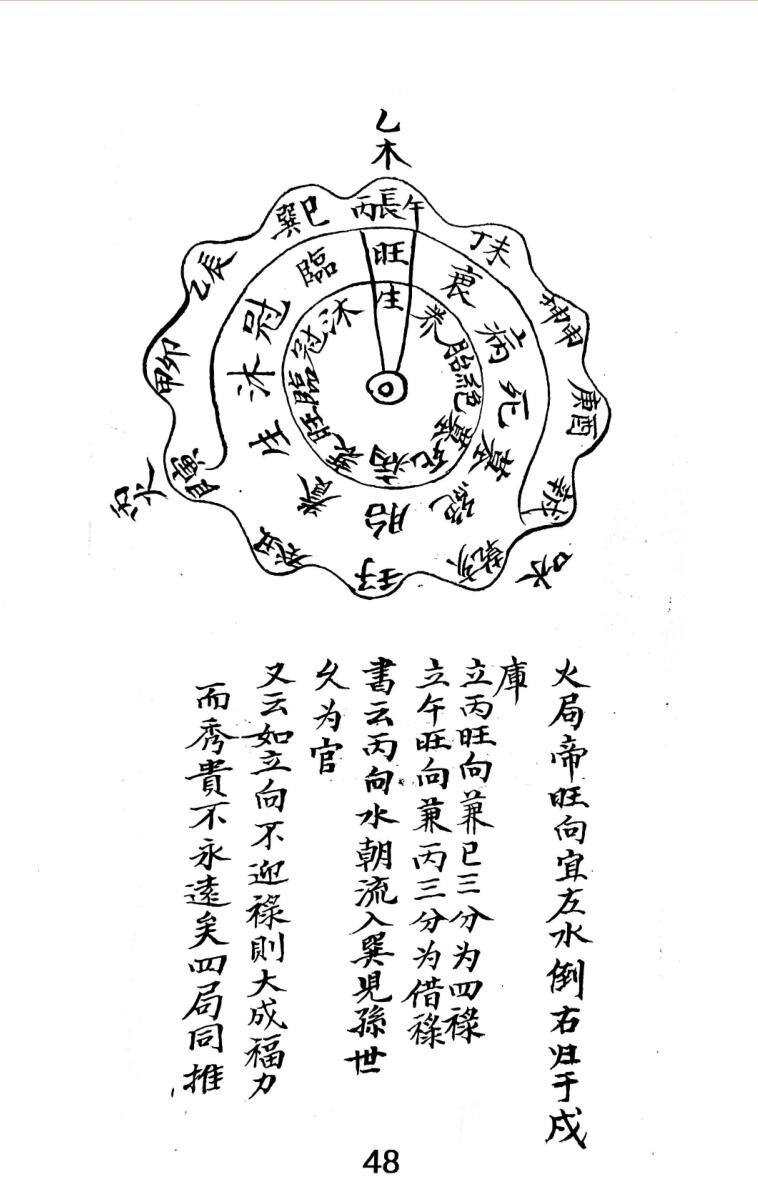 乙木
丙長午
丁未
坤申
庚酉
辛戌
乾亥
壬子
癸丑
艮寅
甲卯
乙辰
巽巳
旺
衰
病
死
墓
絕
胎
養
生
沐
冠
臨
生
养
胎
絕
墓
死
病
衰
旺
臨
冠
沐
火局帝旺向宜左水倒右归于戍
庫
立丙旺向兼巳三分为四祿
立午旺向兼丙三分为借祿
書云丙向水朝流入巽児孫世
久为官
又云如立向不迎祿則大成福力
而秀貴不永遠矣四局同推
48